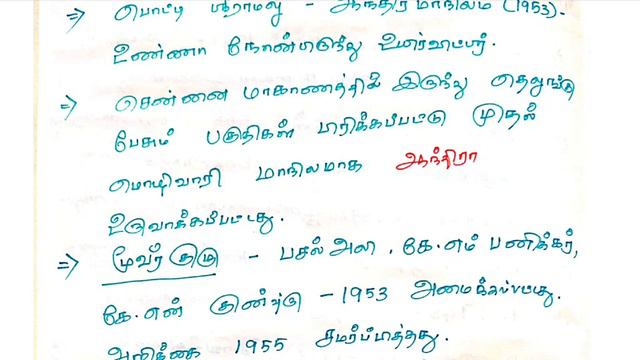 ⇒ பொட்டி ஸ்ரீராமலு - ஆந்திர மாநிலம் (1953).
உண்ணா நோன்பிருந்து உயிர்விட்டார்.
⇒ சென்னை மாகாணத்தில் இருந்து தெலுங்கு
பேசும் பகுதிகள் பிரிக்கப்பட்டு முதல்
மொழிவாரி மாநிலமாக ஆந்திரா
உருவாக்கப்பட்டது.
⇒ மூவர் குழு - பசல் அலி, கே.எம் பணிக்கர்,
கே.என் குன்ஸ்ரு - 1953 அமைக்கப்பட்டது.
அறிக்கை 1955 சமர்ப்பித்தது.